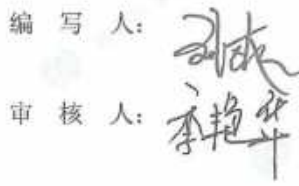 编 写 人：
审 核 人：李艳华